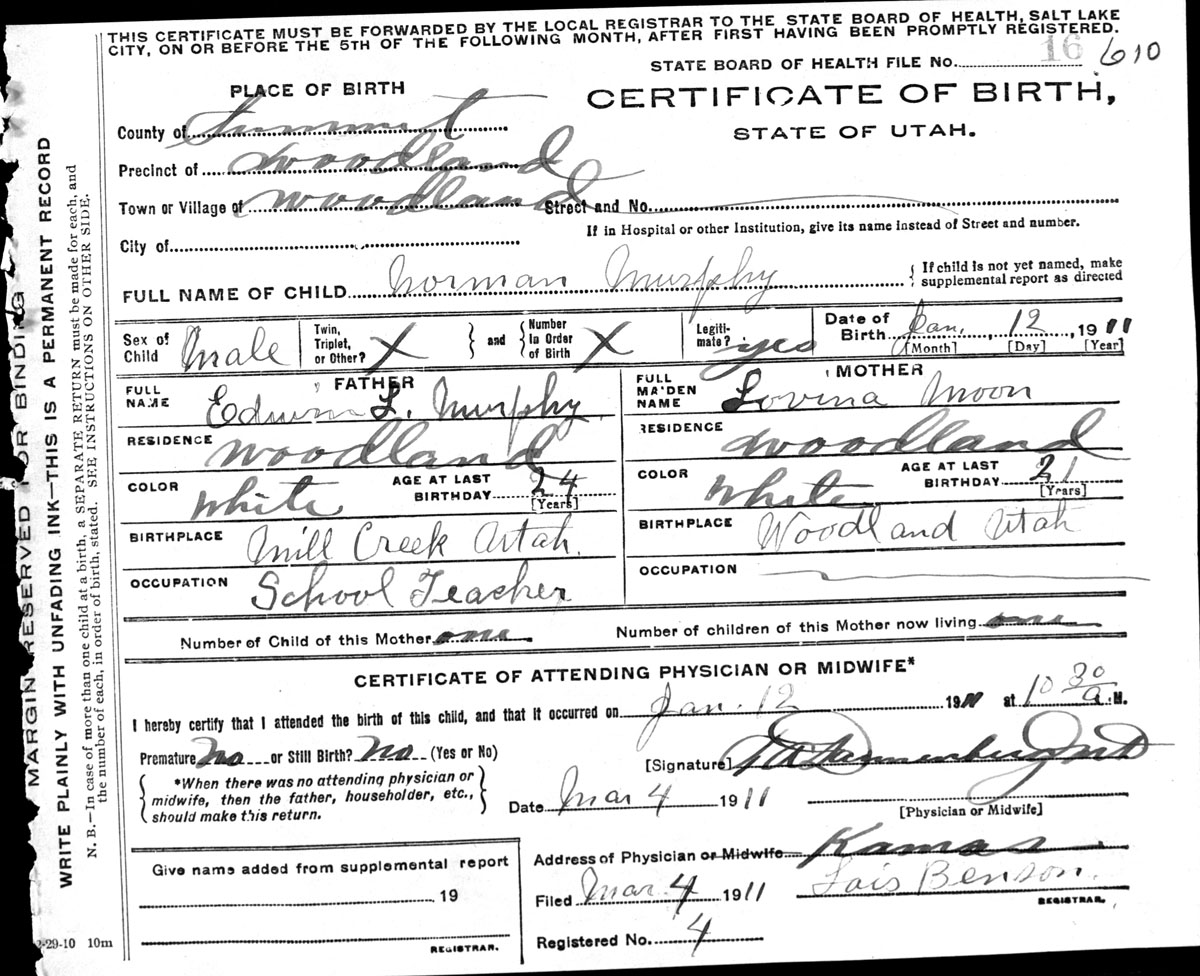 THIS CERTIFICATE MUST BE FORWARDED BY THE LOCAL REGISTRAR TO THE STATE BOARD OF HEALTH, SALT LAKE
CITY, ON OR BEFORE THE 5TH OF THE FOLLOWING MONTH, AFTER FIRST HAVING BEEN PROMPTLY REGISTERED.
STATE BOARD OF HEALTH FILE NO. 16 610
PLACE OF BIRTH
CERTIFICATE OF BIRTH,
STATE OF UTAH.
County of Summit
Precinct of Woodland
Town or Village of Woodland Street and No.
If in Hospital or other Institution, give its name instead of Street and number.
City of
FULL NAME OF CHILD Norman Murphy { If child is not yet named, make
supplemental report as directed
Sex of Child Male Twin, Triplet, or Other? X } and { Number In Order of Birth X Legiti-mate? yes Date of Birth Jan. 12, 1911
[Month] [Day] [Year]
FATHER
FULL NAME Edwin L. Murphy
MOTHER
FULL MAIDEN NAME Lovina Moon
RESIDENCE Woodland
RESIDENCE Woodland
COLOR White AGE AT LAST BIRTHDAY 24 [Years]
COLOR White AGE AT LAST BIRTHDAY 21 [Years]
BIRTHPLACE Mill Creek Utah.
BIRTHPLACE Woodland Utah
OCCUPATION School Teacher
OCCUPATION
Number of Child of this Mother one Number of children of this Mother now living one
CERTIFICATE OF ATTENDING PHYSICIAN OR MIDWIFE*
I hereby certify that I attended the birth of this child, and that it occurred on Jan. 12 1911 at 10 30 a.M.
Premature No or Still Birth? No (Yes or No)
[Signature] Dannenberg MD
[Physician or Midwife]
{ *When there was no attending physician or
midwife, then the father, householder, etc.,
should make this return. }
Date Mar 4 1911
Give name added from supplemental report
19
REGISTRAR.
Address of Physician or Midwife Kamas
Filed Mar. 4 1911 Lois Benson.
REGISTRAR.
Registered No. 4
2-29-10 10m
MARGIN RESERVED FOR BINDING
WRITE PLAINLY WITH UNFADING INK—THIS IS A PERMANENT RECORD
N. B.—In case of more than one child at a birth, a SEPARATE RETURN must be made for each, and
the number of each, in order of birth, stated. SEE INSTRUCTIONS ON OTHER SIDE.